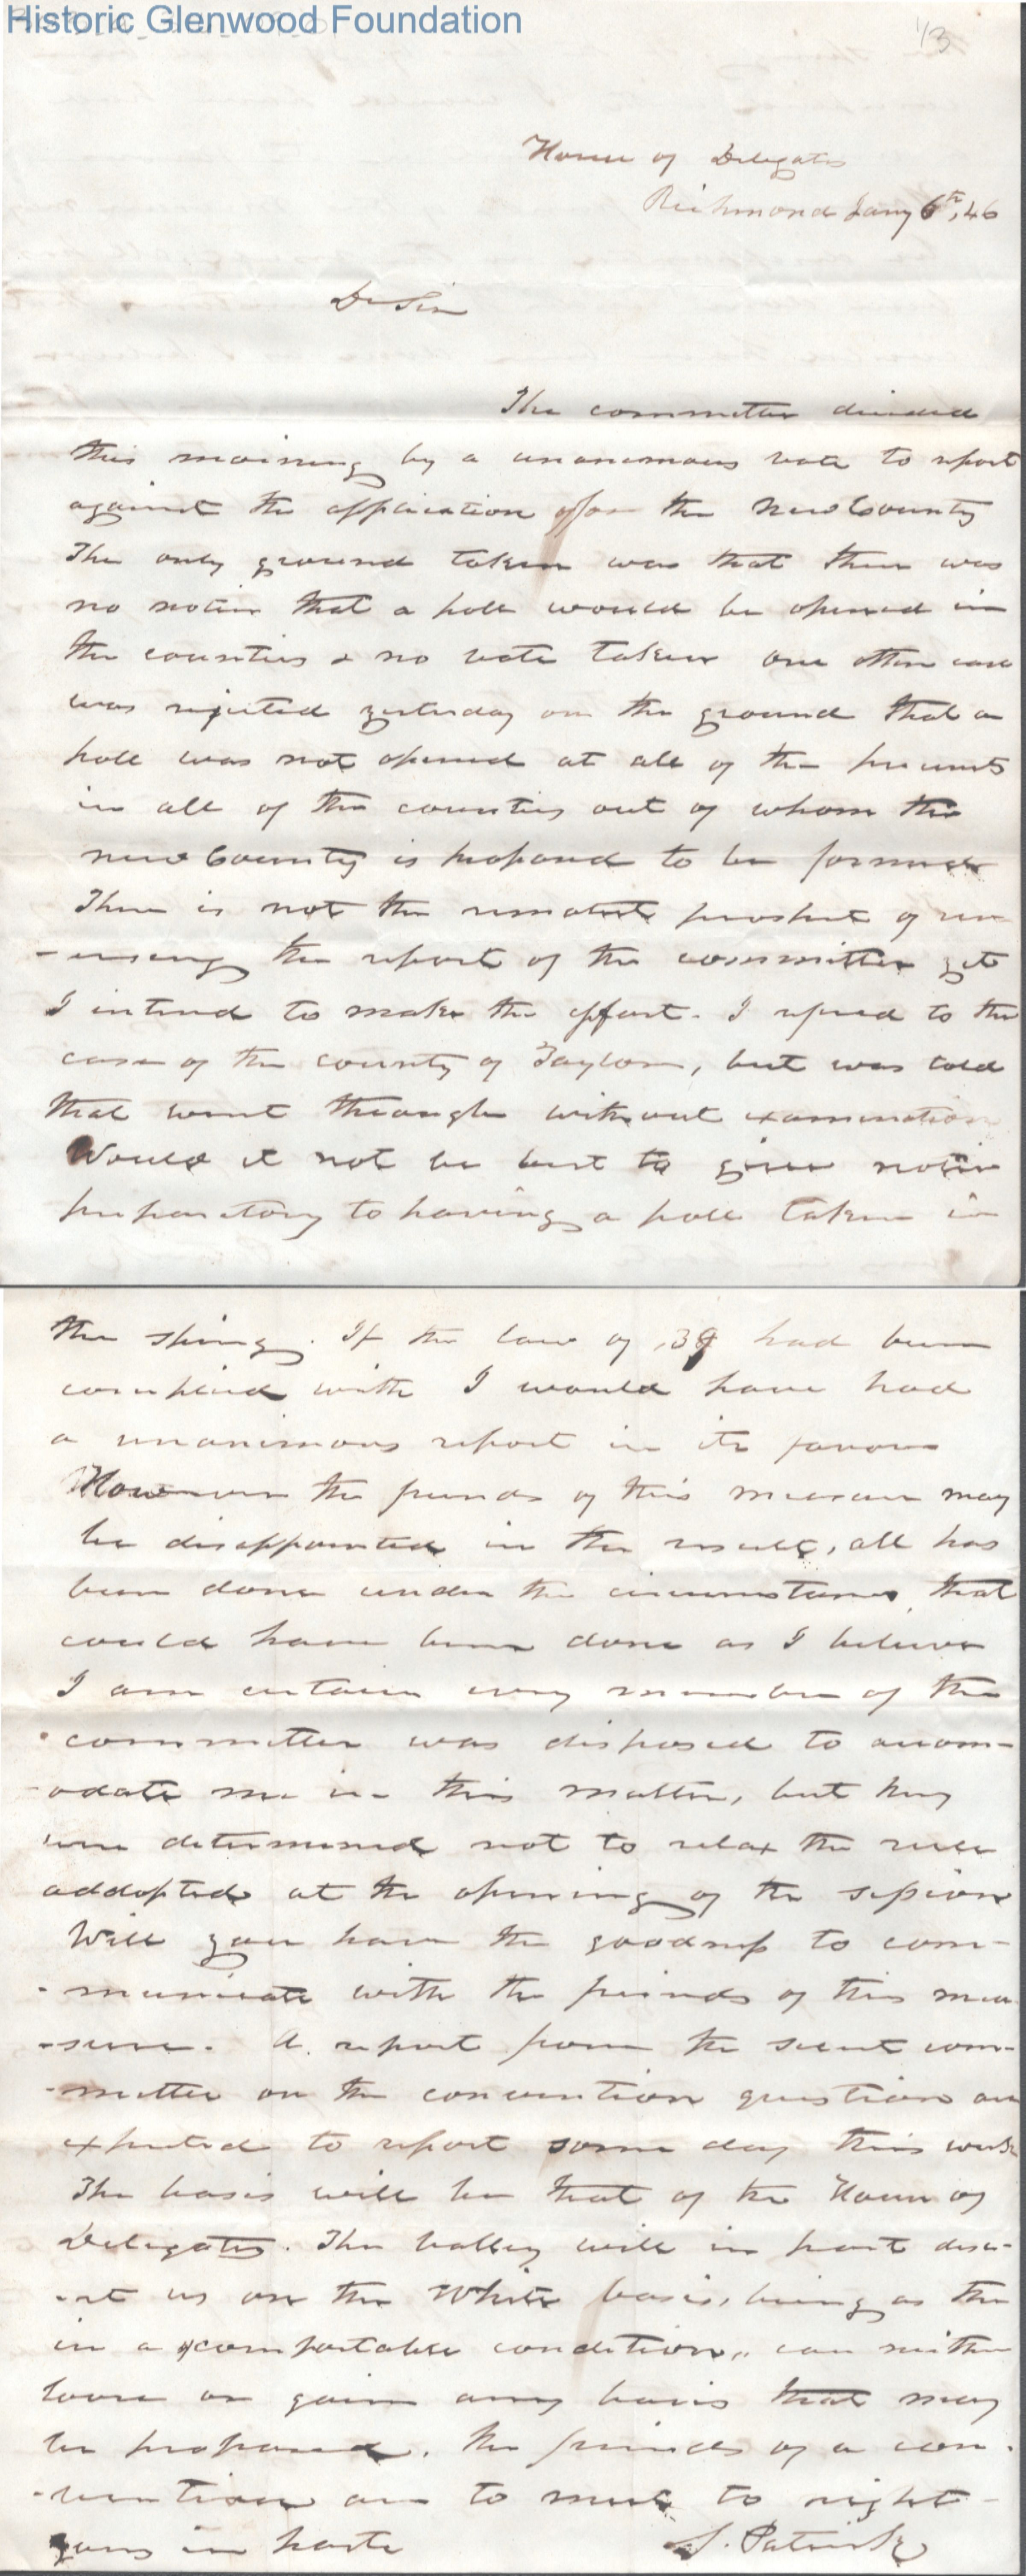 Historic Glenwood Foundation
1/3
House of Delegates
Richmond Jany 6th, 46
Dr Sir
The committee decided
this morning by a unanimous vote to report
against the application for the New County
The only ground taken was that there was
no notice that a poll would be opened in
the counties & no vote taken one other case
was rejected yesterday on the ground that a
poll was not opened at all of the precincts
in all of the counties out of whom the
new County is proposed to be formed
There is not the remotest prospect of rev
-ersing the report of the committee yet
I intend to make the effort. I refered to the
case of the county of Taylor, but was told
that went through without examination
Would it not be best to give notice
preparatory to having a poll taken in
the spring. If the law of ,39 had been
complied with I would have had
a unanimous report in its favor
However the friends of this measure may
be disappointed in the result, all has
been done under the circumstances that
could have been done as I believe
I am certain every member of the
committee was disposed to accom-
-odate me in this matter, but they
were determined not to relax the rule
addopted at the opening of the session
Will you have the goodness to com-
-municate with the friends of this mea
-sure. A report from the select com-
-mittee on the convention question are
expected to report some day this week
The basis will be that of the House of
Delegates. The valley will in part des-
-ert us on the White basis, being as the
in a comfortable condition, can neither
loose or gain any basis that may
be proposed. The friends of a con-
-vention are to meet to night-
yours in haste S. Patrick